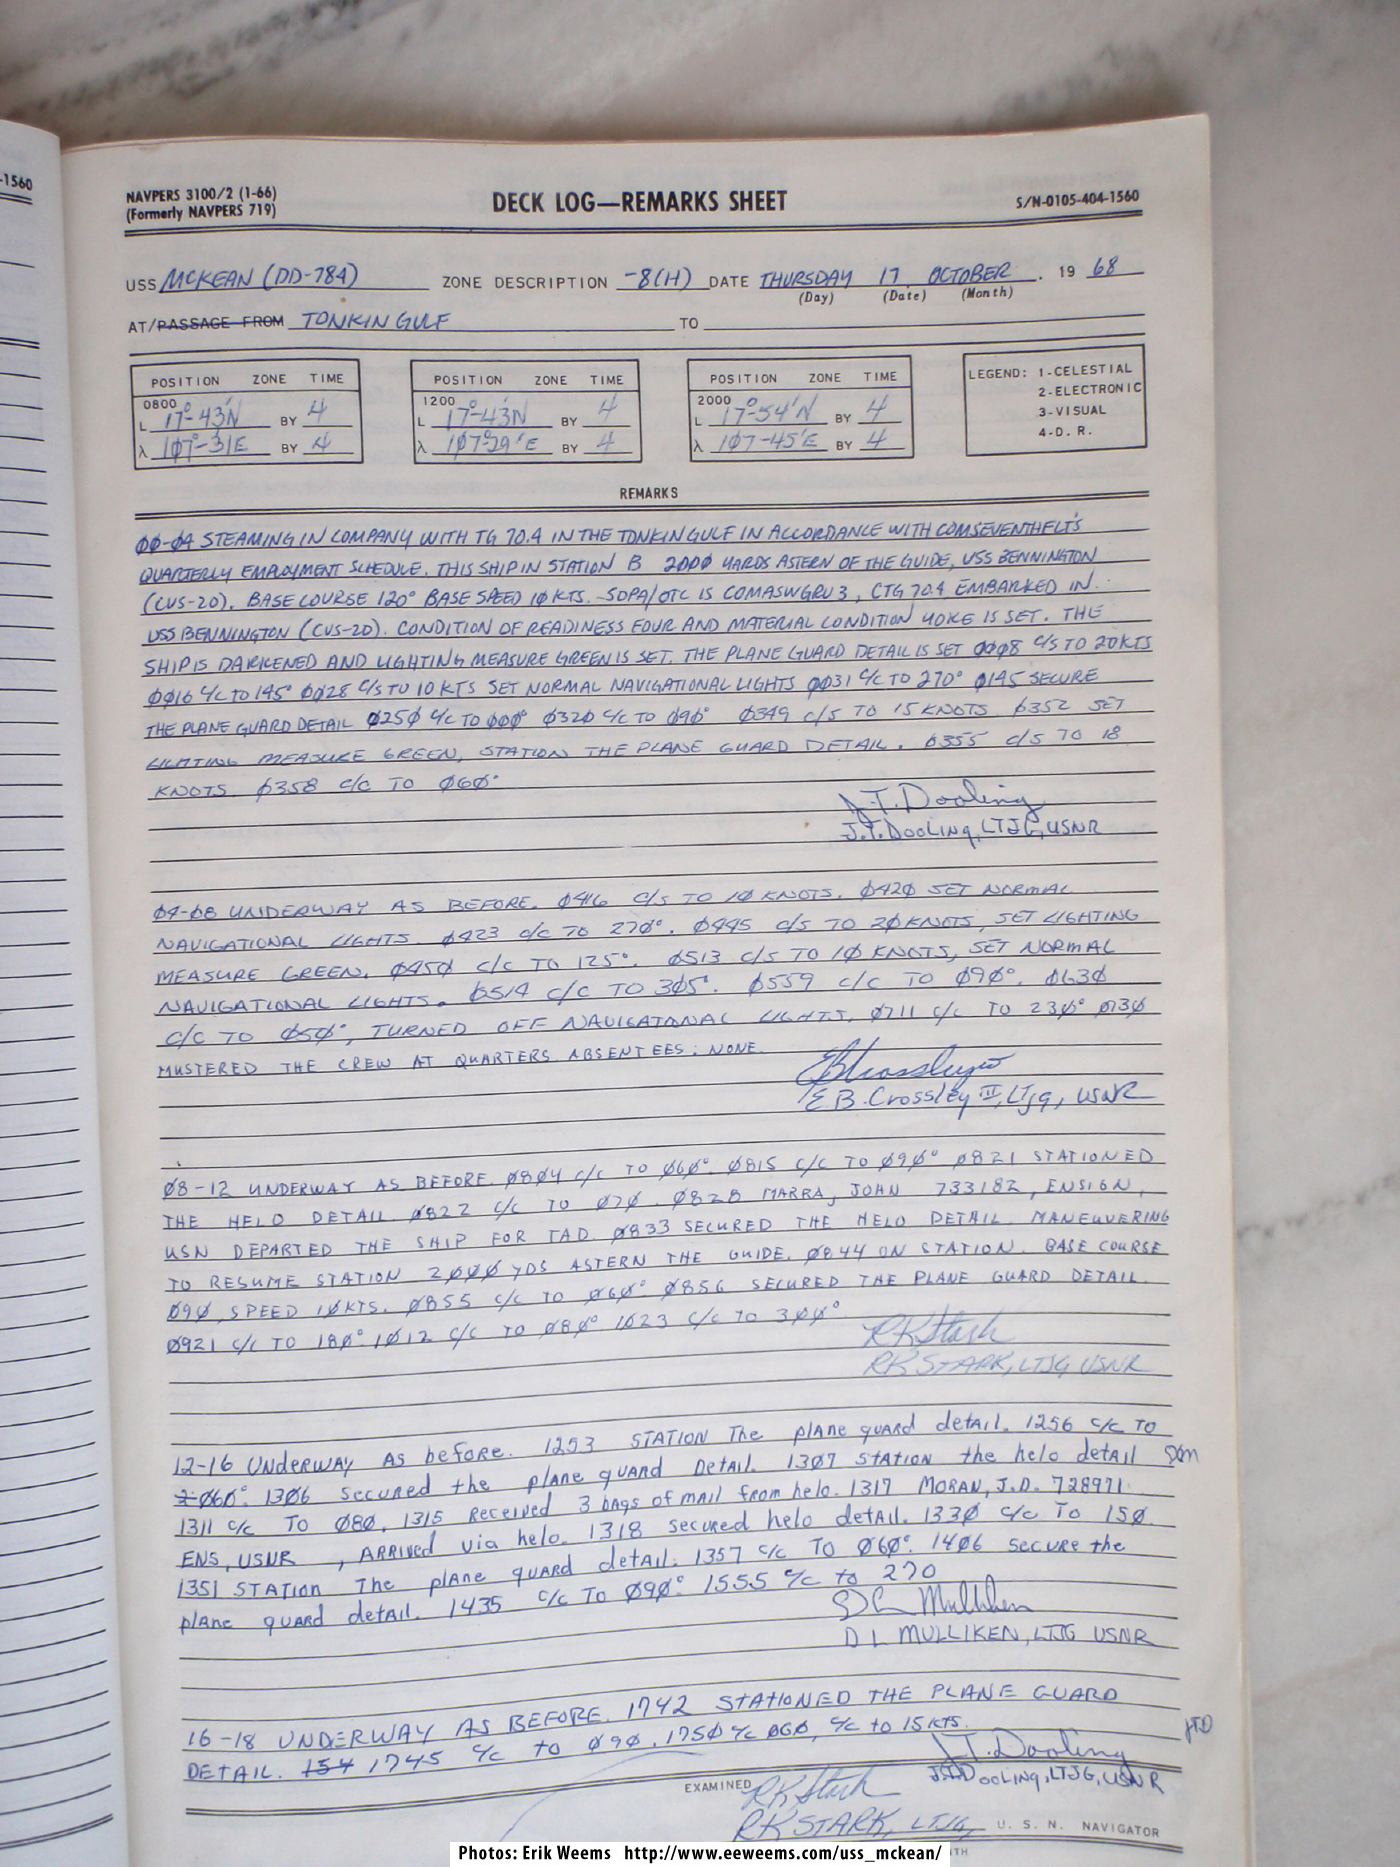 -1560
NAVPERS 3100/2 (1-66)
(Formerly NAVPERS 719)
DECK LOG—REMARKS SHEET
S/N-0105-404-1560
USS MCKEAN (DD-784) ZONE DESCRIPTION -8(H) DATE THURSDAY 17 OCTOBER . 19 68
(Day) (Date) (Month)
AT/PASSAGE FROM TONKIN GULF TO
POSITION ZONE TIME
0800
L 17°-43'N BY 4
λ 107°-31E BY 4
POSITION ZONE TIME
1200
L 17°-43'N BY 4
λ 107°29'E BY 4
POSITION ZONE TIME
2000
L 17°-54'N BY 4
λ 107-45'E BY 4
LEGEND: 1-CELESTIAL
2-ELECTRONIC
3-VISUAL
4-D.R.
REMARKS
00-04 STEAMING IN COMPANY WITH TG 70.4 IN THE TONKIN GULF IN ACCORDANCE WITH COMSEVENTHFLT'S
QUARTERLY EMPLOYMENT SCHEDULE. THIS SHIP IN STATION B 2000 YARDS ASTERN OF THE GUIDE, USS BENNINGTON
(CVS-20). BASE COURSE 120° BASE SPEED 10 KTS. SOPA/OTC IS COMASWGRU 3, CTG 70.4 EMBARKED IN
USS BENNINGTON (CVS-20). CONDITION OF READINESS FOUR AND MATERIAL CONDITION YOKE IS SET. THE
SHIP IS DARKENED AND LIGHTING MEASURE GREEN IS SET. THE PLANE GUARD DETAIL IS SET 0008 C/S TO 20KTS
0016 C/C TO 145° 0028 C/S TO 10 KTS SET NORMAL NAVIGATIONAL LIGHTS 0031 C/C TO 270° 0145 SECURE
THE PLANE GUARD DETAIL 0250 C/C TO 000° 0320 C/C TO 090° 0349 C/S TO 15 KNOTS 0352 SET
LIGHTING MEASURE GREEN, STATION THE PLANE GUARD DETAIL. 0355 C/S TO 18
KNOTS 0358 C/C TO 060°
J.T. Dooling
J.T. DOOLING, LTJG, USNR
04-08 UNDERWAY AS BEFORE. 0416 C/S TO 10 KNOTS. 0420 SET NORMAL
NAVIGATIONAL LIGHTS. 0423 C/C TO 270°. 0445 C/S TO 20 KNOTS, SET LIGHTING
MEASURE GREEN. 0450 C/C TO 125°. 0513 C/S TO 10 KNOTS, SET NORMAL
NAVIGATIONAL LIGHTS. 0514 C/C TO 305°. 0559 C/C TO 090°. 0630
C/C TO 050°, TURNED OFF NAVIGATONAL LIGHTS. 0711 C/C TO 230° 0730
MUSTERED THE CREW AT QUARTERS ABSENTEES: NONE.
EB Crossley
E.B. Crossley III, LTjg, USNR
08-12 UNDERWAY AS BEFORE. 0804 C/C TO 060° 0815 C/C TO 090° 0821 STATIONED
THE HELO DETAIL. 0822 C/C TO 070. 0828 MARRA, JOHN 733182, ENSIGN,
USN DEPARTED THE SHIP FOR TAD. 0833 SECURED THE HELO DETAIL. MANEUVERING
TO RESUME STATION 2000 YDS ASTERN THE GUIDE. 0844 ON STATION. BASE COURSE
090, SPEED 10KTS. 0855 C/C TO 060° 0856 SECURED THE PLANE GUARD DETAIL.
0921 C/C TO 180° 1012 C/C TO 080° 1023 C/C TO 300°
RK Stark
RK STARK, LTJG USNR
12-16 UNDERWAY AS before. 1253 STATION The plane guard detail. 1256 C/C TO
2 060°. 1306 secured the plane guard Detail. 1307 STATION the helo detail
1311 C/C TO 080. 1315 Received 3 bags of mail from helo. 1317 MORAN, J.D. 728971
ENS, USNR , ARRIVED via helo. 1318 secured helo detail. 1330 C/C TO 150.
1351 STATION The plane guard detail. 1357 C/C TO 060°. 1406 secure the
plane guard detail. 1435 C/C TO 090°. 1555 C/C to 270
DL Mulliken
D L MULLIKEN, LTJG USNR
16-18 UNDERWAY AS BEFORE. 1742 STATIONED THE PLANE GUARD
DETAIL. 154 1745 C/C to 090. 1750 C/C 060, C/C to 15 KTS. JTD
J.T. Dooling
J.T. Dooling, LTJG, USNR
EXAMINED RK Stark
RK STARK, LTJG, U. S. N. NAVIGATOR
Photos: Erik Weems http://www.eeweems.com/uss_mckean/